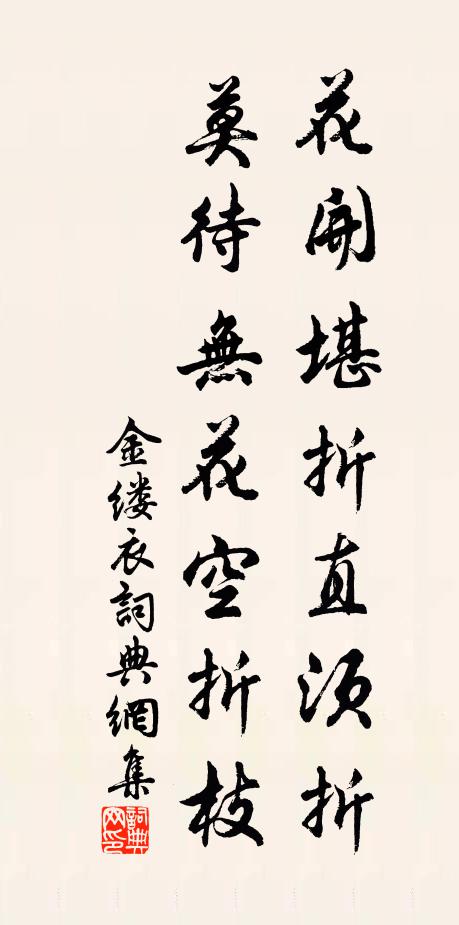 花開堪折直須折
莫待無花空折枝
金缕衣詞典網集
詞典網印